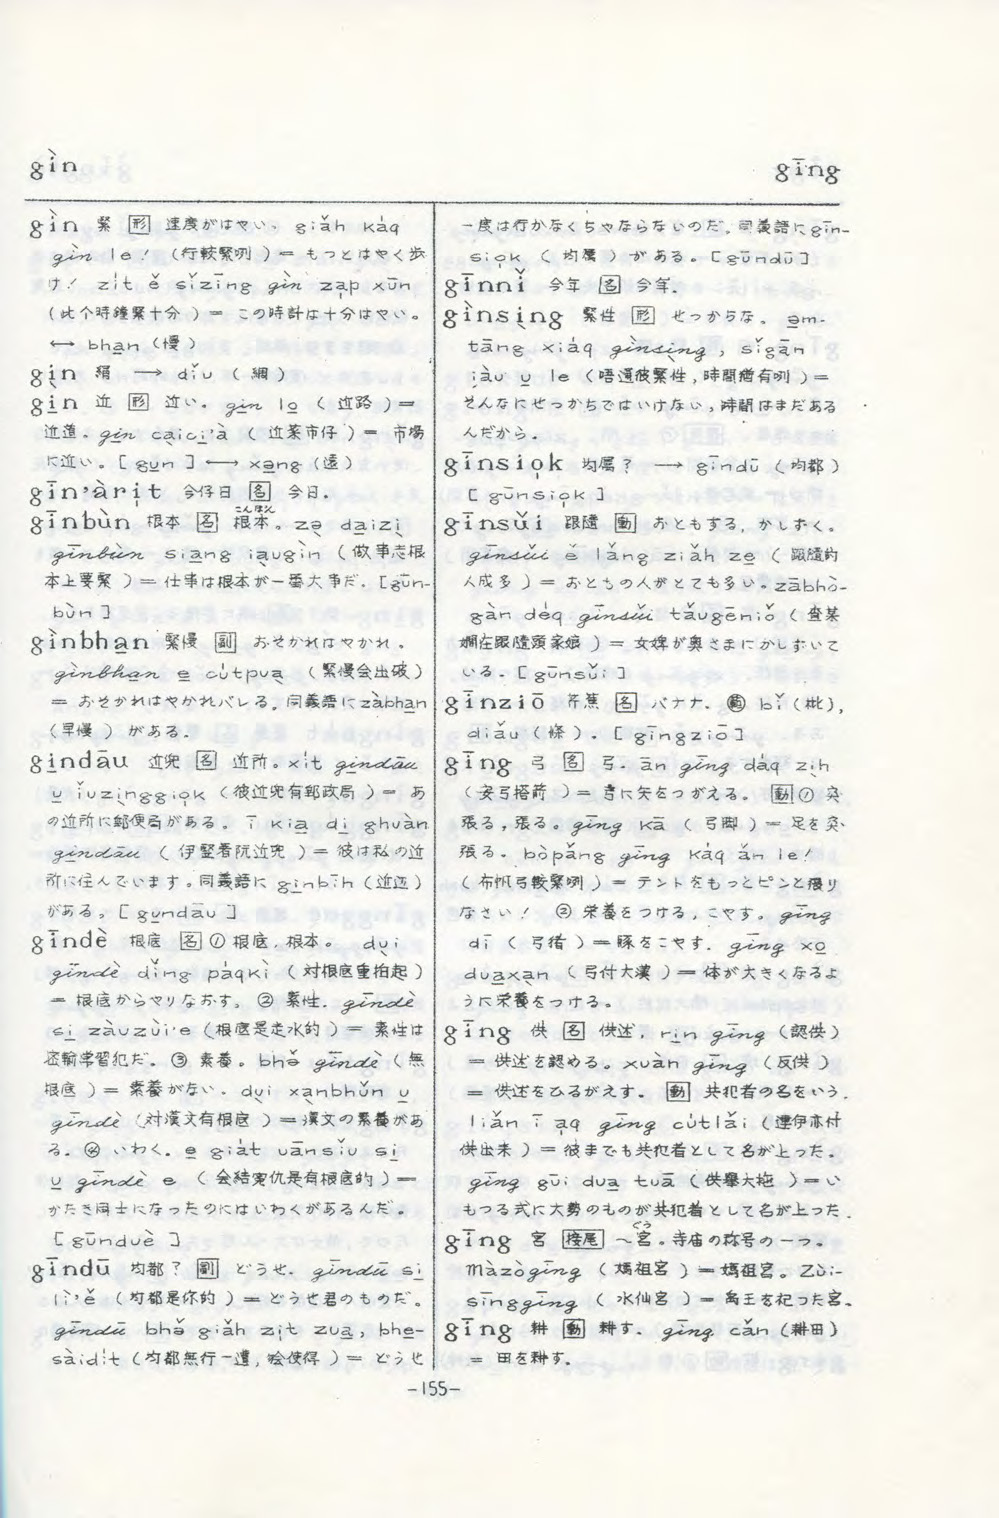 gìn
gīng
gìn 緊 形 速度がはやい。giǎh kàq
gìn le！（行較緊咧）＝もっとはやく歩
け！ zit ě sǐzīng gìn zap xūn
（此个時鐘緊十分）＝この時計は十分はやい。
←→ bhan（慢）
gin 絹 → diu（綢）
gin 近 形 近い。gin lo（近路）＝
近道。gin caici'à（近菜市仔）＝市場
に近い。[gun] ←→ xang（遠）
gīn'àrit 今仔日 名 今日。
gīnbùn 根本 名 根本。zə daizi
こんぽん
gīnbùn siang iaugìn（做事志根
本上要緊）＝仕事は根本が一番大事だ。[gūn-
bùn]
gìnbhan 緊慢 副 おそかれはやかれ。
gìnbhan e cútpua（緊慢会出破）
＝おそかれはやかれバレる。同義語にzàbhan
（早慢）がある。
gindāu 近兜 名 近所。xit gindāu
u iǔzinggiok（彼近兜有郵政局）＝あ
の近所に郵便局がある。ī kia di ghuàn
gindāu（伊竪看阮近兜）＝彼は私の近
所に住んでいます。同義語に ginbīh（近辺）
がある。[gundāu]
gīndè 根底 名 ①根底，根本。dui
gīndè dǐng pàqkì（対根底重拍起）
＝根底からやりなおす。②素性。gīndè
si zàuzùi'e（根底是走水的）＝素性は
密輸学習犯だ。③素養。bhə̌ gīndè（無
根底）＝素養がない。dui xanbhǔn u
gīndè（対漢文有根底）＝漢文の素養があ
る。④いわく。e giát uānsiǔ si
u gīndè e（会結寃仇是有根底的）＝
かたき同士になったのにはいわくがあるんだ。
[gūnduè]
gīndū 均都？ 副 どうせ。gīndū si
lì'ě（均都是你的）＝どうせ君のものだ。
gīndū bhə̌ giǎh zit zua, bhe-
sàidit（均都無行一遭，𣍐使得）＝どうせ
一度は行かなくちゃならないのだ。同義語にgīn-
siok（均属）がある。[gūndū]
gīnnǐ 今年 名 今年。
gìnsing 緊性 形 せっからな。əm-
tāng xiàq gìnsing, sǐgān
iàu u le（唔通彼緊性，時間猶有咧）＝
そんなにせっかちではいけない，時間はまだある
んだから。
gīnsiok 均属？ → gīndū（均都）
[gūnsiok]
gīnsǔi 跟隨 動 おともする，かしずく。
gīnsǔi ě lǎng ziǎh ze（跟隨的
人成多）＝おともの人がとても多い。zābhò-
gàn deq gīnsǔi tǎugēniǒ（査某
嫺在跟隨頭家娘）＝女婢が奥さまにかしずいて
いる。[gūnsǔi]
gīnziō 芹蕉 名 バナナ。㊝ bǐ（枇），
diǎu（條）。[gīngziō]
gīng 弓 名 弓。ān gīng daq zih
（安弓搭箭）＝弓に矢をつがえる。 動 ①突
張る，張る。gīng kā（弓脚）＝足を突
張る。bòpǎng gīng kàq ǎn le！
（布帆弓較緊咧）＝テントをもっとピンと張り
なさい！ ②栄養をつける，こやす。gīng
dī（弓猪）＝豚をこやす。gīng xo
duaxan（弓付大漢）＝体が大きくなるよ
うに栄養をつける。
gīng 供 名 供述。rin gīng（認供）
＝供述を認める。xuàn gīng（反供）
＝供述をひるがえす。 動 共犯者の名をいう。
liǎn ī aq gīng cútlǎi（連伊亦付
供出来）＝彼までも共犯者として名が上った。
gīng gūi dua tuā（供舉大拖）＝い
もづる式に大勢のものが共犯者として名が上った。
gīng 宮 接尾 〜宮。寺廟の称号の一つ。
ぐう
màzògīng（媽祖宮）＝媽祖宮。zùi-
singgīng（水仙宮）＝禹王を祀った宮。
gīng 耕 動 耕す。gīng cǎn（耕田）
＝田を耕す。
-155-